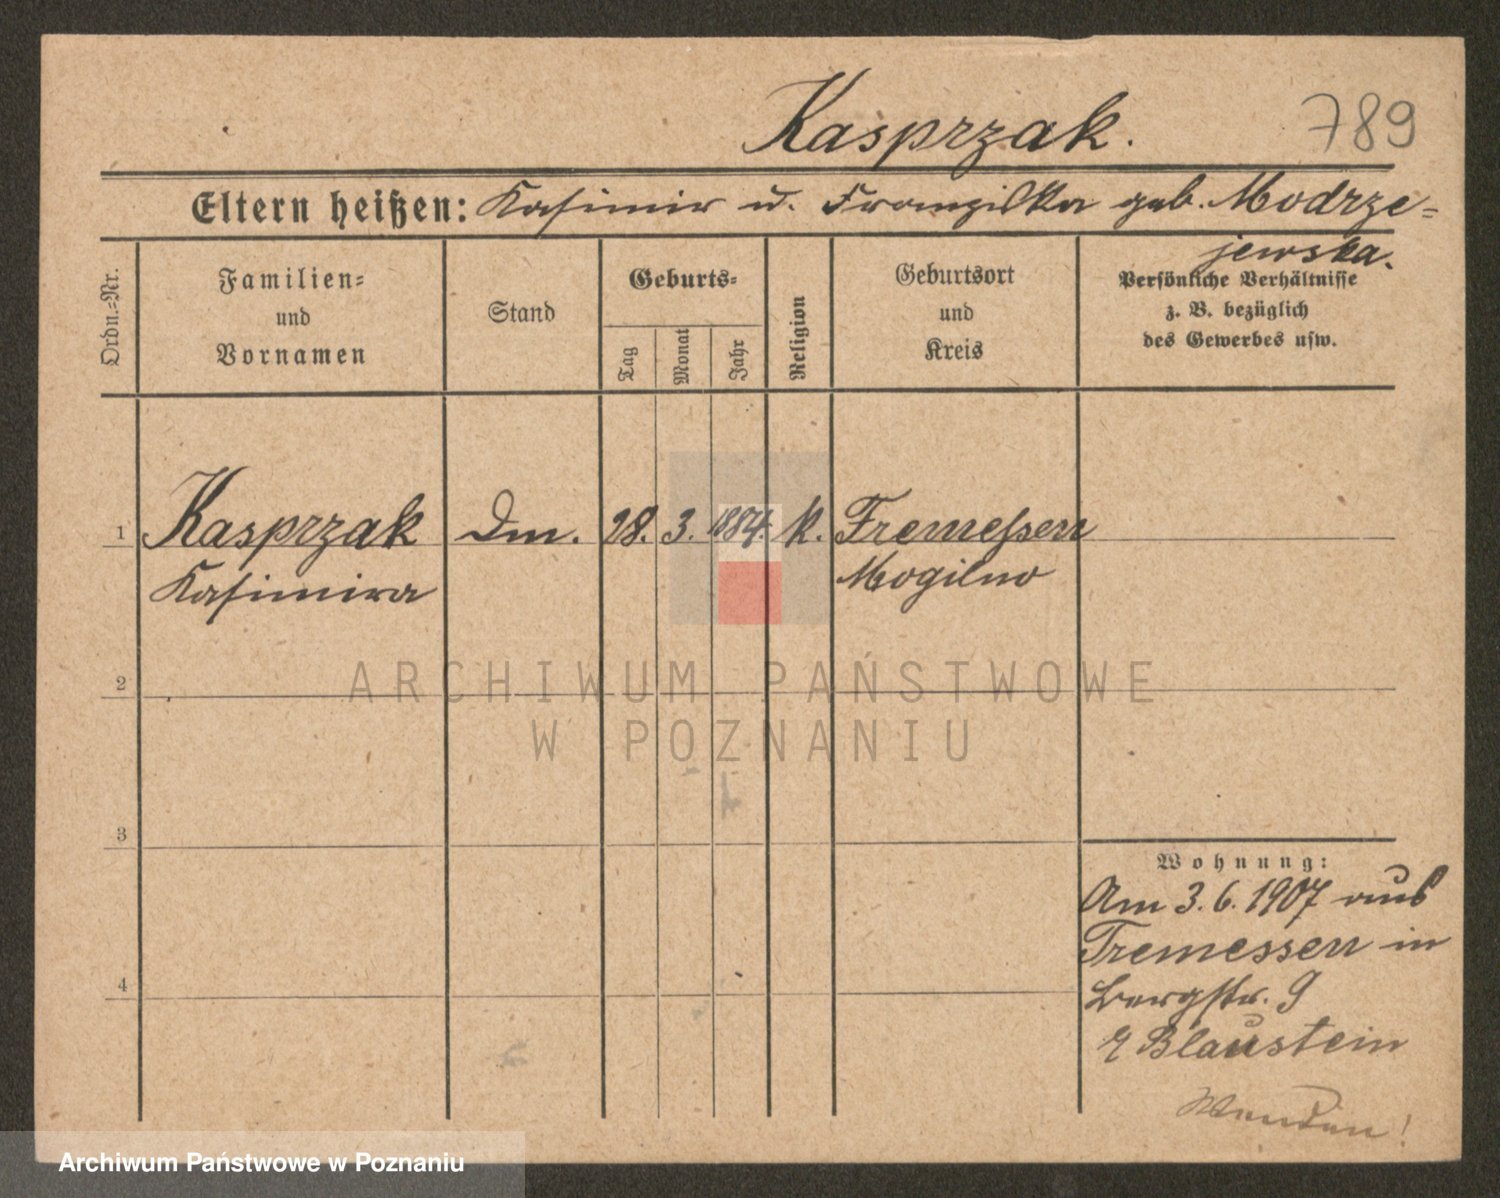 Kasprzak.
789
Eltern heißen: Kasimir u. Franziska geb. Modrze-
jewska.
Ordn.-Nr.
Familien-
und
Vornamen
Stand
Geburts-
Tag
Monat
Jahr
Religion
Geburtsort
und
Kreis
Persönliche Verhältnisse
z. B. bezüglich
des Gewerbes usw.
1 Kasprzak Dm. 28. 3. 1884. k. Tremessen
Kasimira Mogilno
ARCHIWUM PAŃSTWOWE
W POZNANIU
2
3
4
Wohnung:
Am 3.6.1907 aus
Tremessen in
Bergstr. 9
Blaustein
Wenden!
Archiwum Państwowe w Poznaniu